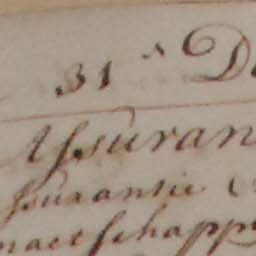 31 De
Assuran
ssurantie
maetschapp